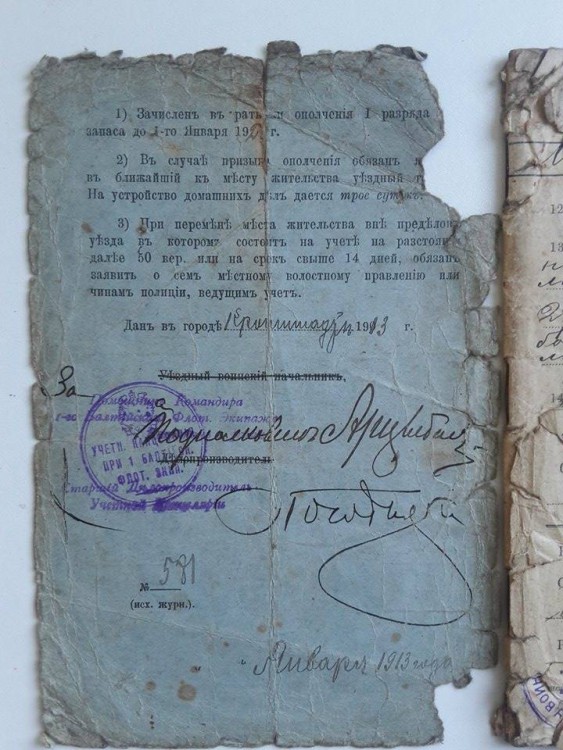 1) Зачислен въ рат и ополченія I разряда
запаса до 1-го Января 19 г.
2) Въ случаѣ призыва ополченія обязан
въ ближайшій къ мѣсту жительства уѣздный г
На устройство домашнихъ дѣлъ дается трое суток
3) При перемѣнѣ мѣста жительства внѣ предѣлов
уѣзда въ которомъ состоитъ на учетѣ на разстоян
далѣе 50 вер. или на срокъ свыше 14 дней, обязан
заявить о семъ мѣстному волостному правленію или
чинамъ полиціи, ведущимъ учетъ.
Данъ въ городѣ Кронштадтъ 1913 г.
Уѣздный воинскій начальникъ,
За Помощника Командира
1-го Балтійскаго Флот. Экипажа
УЧЕТН.
ПРИ 1 БАЛТ.
ФЛОТ. ЭКИП.
Дѣлопроизводитель
Старшій Дѣлопроизводитель
Учетной Канцеляріи
№ 581
(исх. журн.).
" Января 1913 года
12
13
14